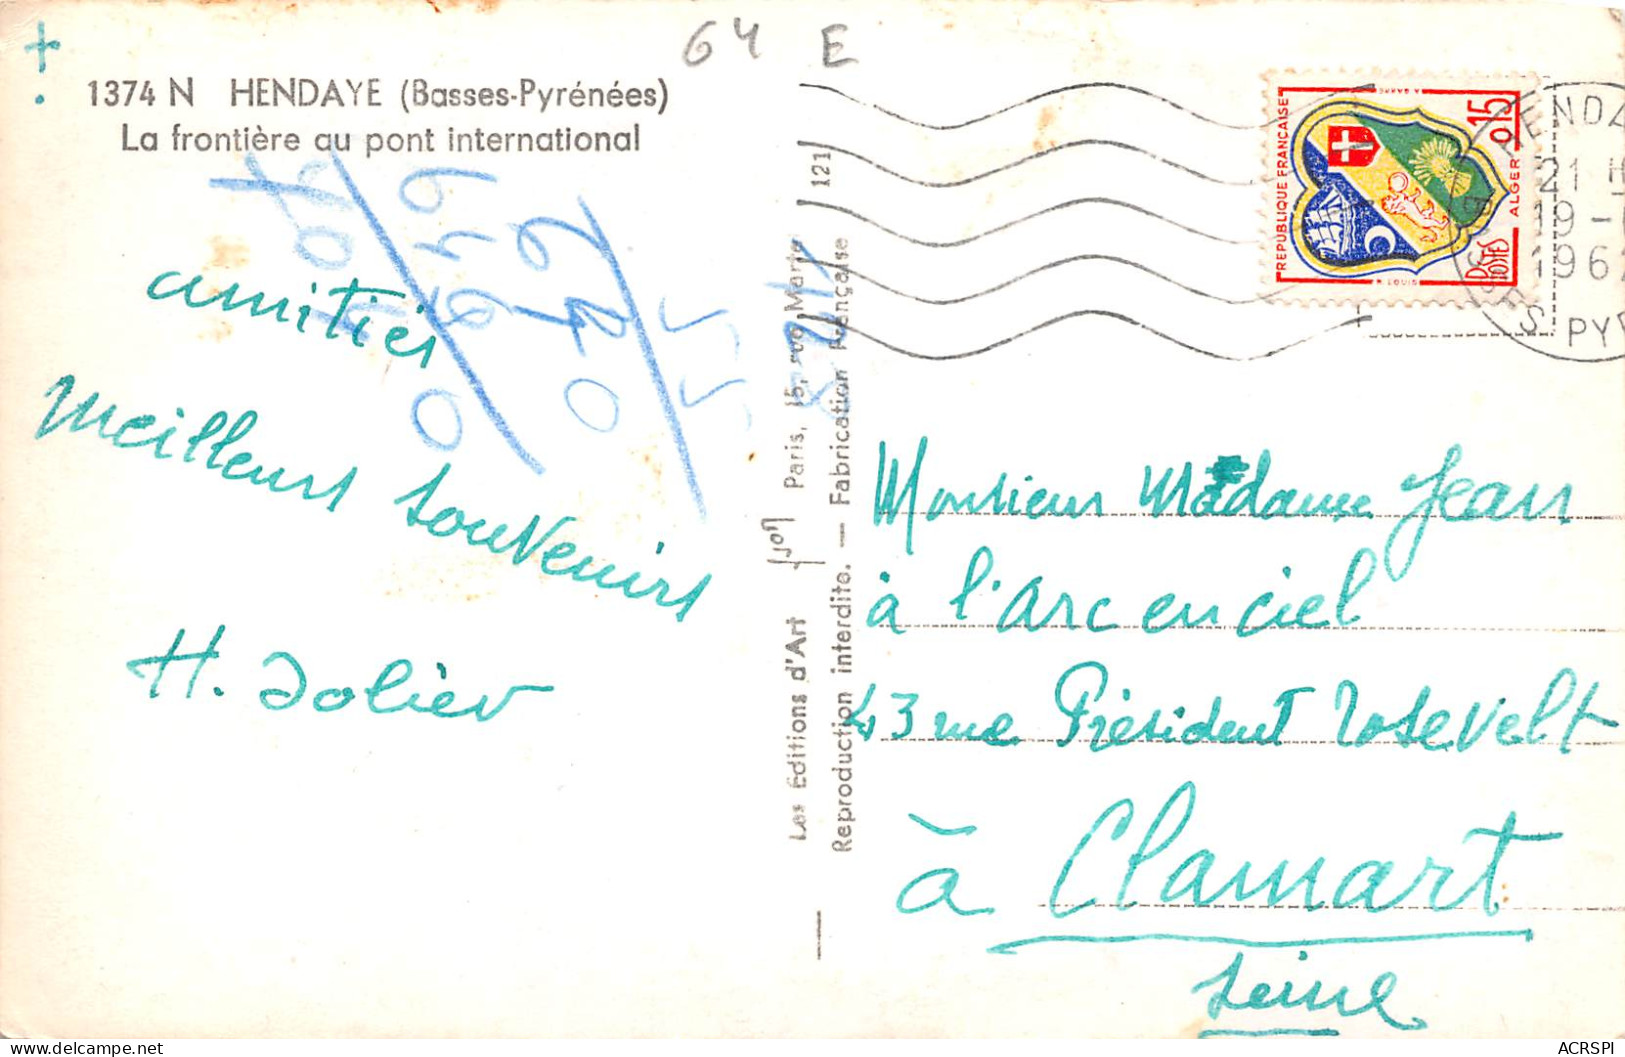 64 E
1374 N HENDAYE (Basses-Pyrénées)
La frontière au pont international
amitiés
meilleurs souvenirs
H. Jolier
Les Éditions d'Art Yvon Paris, 15, rue Martel
Reproduction interdite. — Fabrication Française
121
REPUBLIQUE FRANÇAISE
0,15
ALGER
POSTES
R. LOUIS
21 H
19 -
196
PYR
Monsieur Madame Jean
à l'arc en ciel
43 rue Président Rosevelt
à Clamart
Seine
ACRSPI